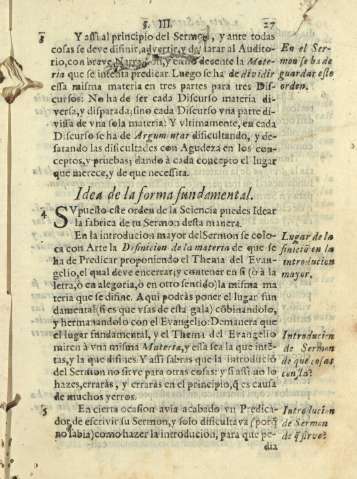 §. III. 27
3 Y assi al principio del Sermon, y ante todas
cosas se deve difinir, advertir, y declarar al Audito-
rio, con breve Narracion, y estilo decente la Mate-
ria que se intenta predicar. Luego se ha de dividir
essa misma materia en tres partes para tres Dis-
cursos: No ha de ser cada Discurso materia di-
versa, y disparada; sino cada Discurso vna parte di-
vissa de vna sola materia: Y vltimamente, en cada
Discurso se ha de Argumentar dificultando, y de-
satando las dificultades con Agudeza en los con-
ceptos, y pruebas; dando à cada concepto el lugar
que merece, y de que necessita.
En el Ser-
mon se ha de
guardar este
orden.
Idea de la forma fundamental.
4 SVpuesto este orden de la Sciencia puedes Idear
la fabrica de tu Sermon desta manera.
En la introducion mayor del Sermon se colo-
ca con Arte la Difinicion de la materia de que se
ha de Predicar proponiendo el Thema del Evan-
gelio, el qual deve encerrar, y contener en si (ò à la
letra, ò en alegoria, o en otro sentido) la misma ma
teria que se difine. Aqui podràs poner el lugar fun
damental (si es que vsas de esta gala) cõbinandolo,
y hermanandolo con el Evangelio: De manera que
el lugar fundamental, y el Thema del Evangelio
miren à vna misma Materia, y essa sea la que inté-
tas, y la que difines. Y assi sabras que la introduciõ
del Sermon no sirve para otras cosas: y si assi no lo
hazes, erraràs, y erraràs en el principio, q̃ es causa
de muchos yerros.
Lugar de la
difiniciõ en la
introducion
mayor.
Introducion
de Sermon
de què cosas
consta?
5 En cierta ocasion avia acabado vn Predica-
dor de escrivir su Sermon, y solo dificultava (porq̃
no sabia) como hazer la introducion, para que pe-
dia
Introducion
de Sermon
de q̃ sirve?